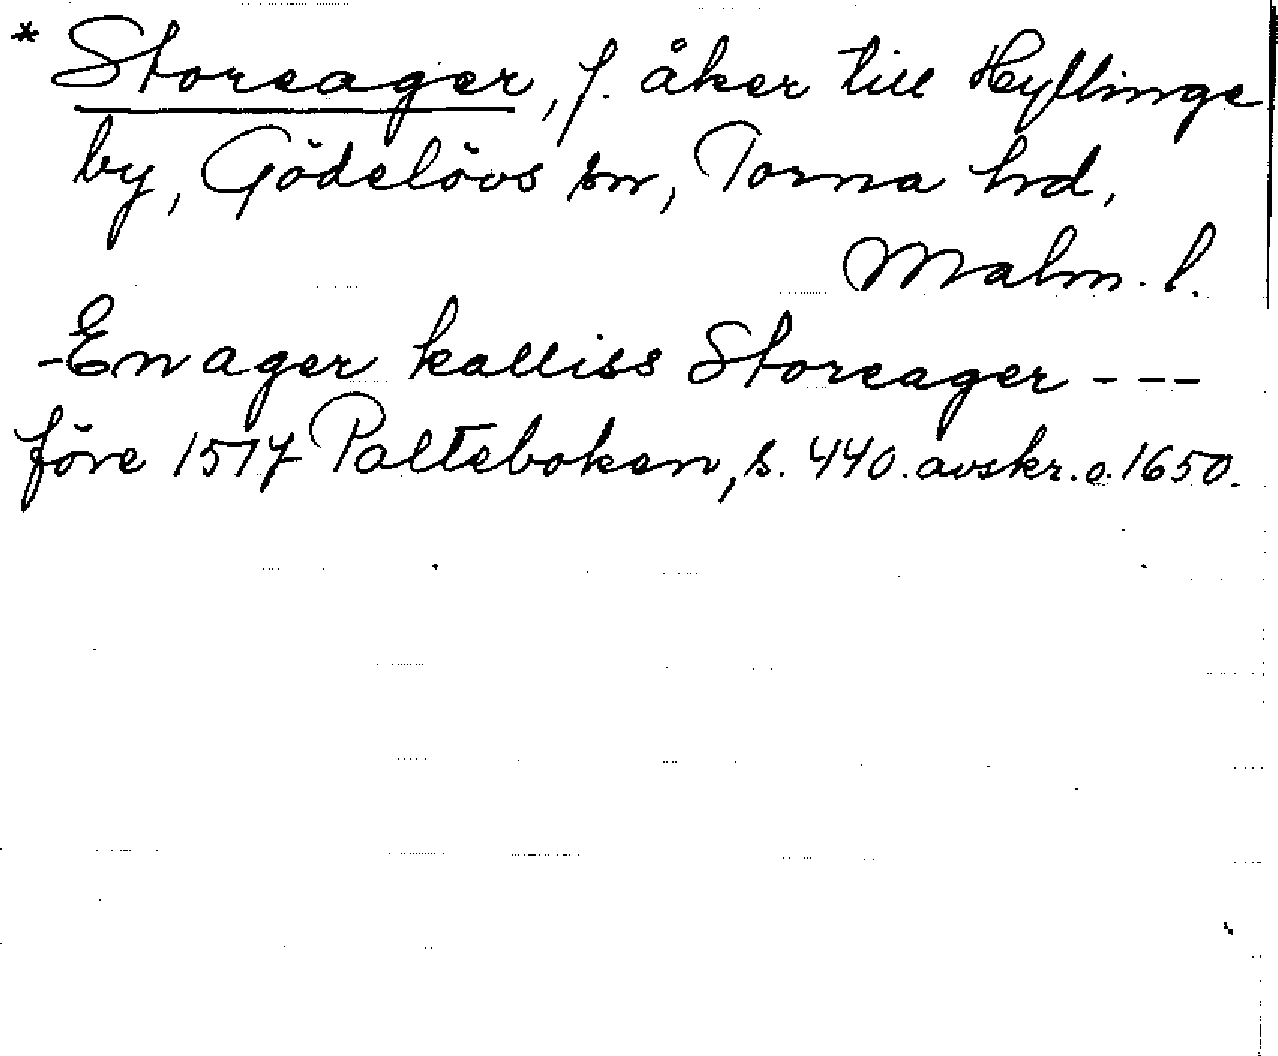 * Storeager, f. åker till Hyllinge
by, Gödelövs sn, Torna hd,
Malm. l.
-En ager kalliss Storeager ---
före 1517 Palteboken, s. 440. avskr. o. 1650.